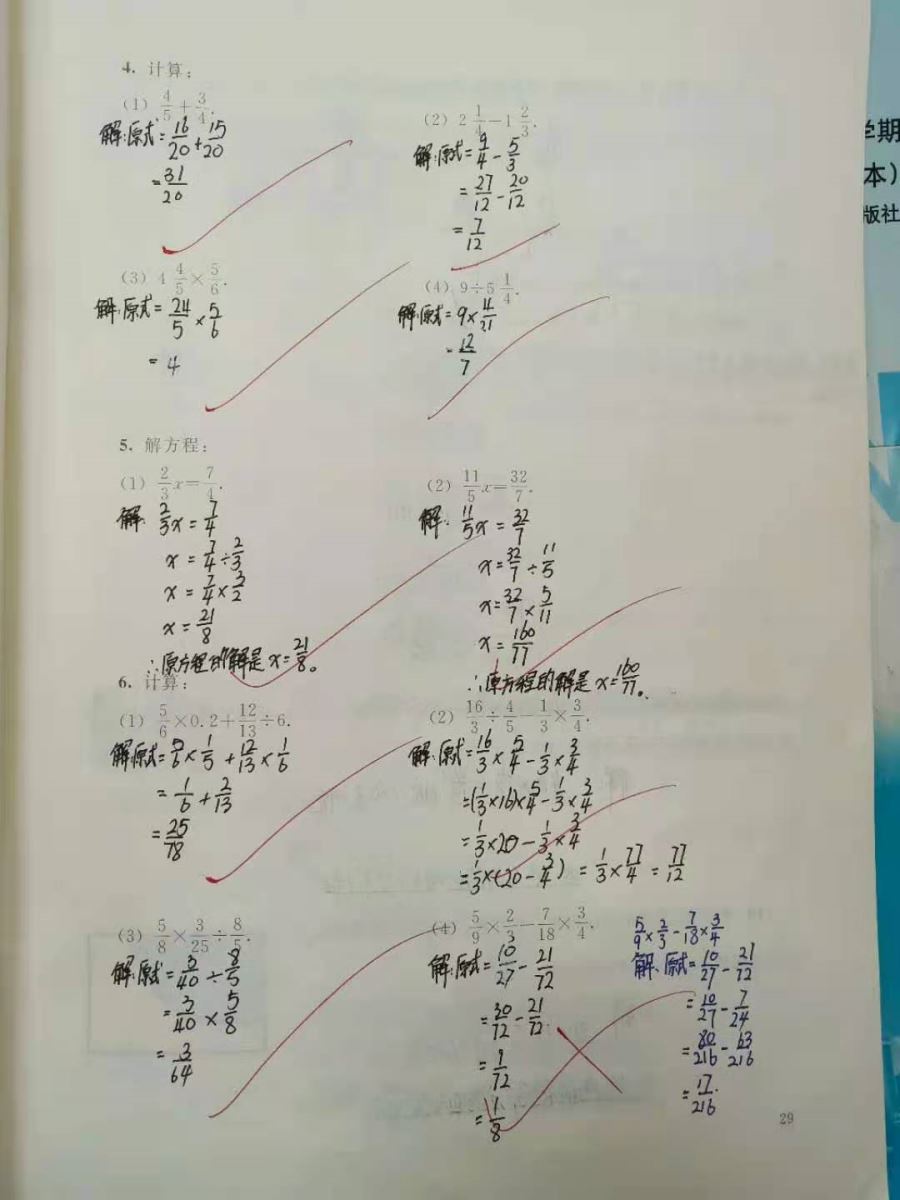 4. 计算:
(1) 4/5 + 3/4.
解:原式 = 16/20 + 15/20
= 31/20
(2) 2 1/4 - 1 2/3.
解:原式 = 9/4 - 5/3
= 27/12 - 20/12
= 7/12
(3) 4 4/5 × 5/6.
解:原式 = 24/5 × 5/6
= 4
(4) 9 ÷ 5 1/4.
解:原式 = 9 × 4/21
= 12/7
5. 解方程:
(1) 2/3 x = 7/4.
解: 2/3 x = 7/4
x = 7/4 ÷ 2/3
x = 7/4 × 3/2
x = 21/8
∴原方程的解是 x = 21/8。
(2) 11/5 x = 32/7.
解: 11/5 x = 32/7
x = 32/7 ÷ 11/5
x = 32/7 × 5/11
x = 160/77
∴原方程的解是 x = 160/77。
6. 计算:
(1) 5/6 × 0.2 + 12/13 ÷ 6.
解:原式 = 5/6 × 1/5 + 12/13 × 1/6
= 1/6 + 2/13
= 25/78
(2) 16/3 ÷ 4/5 - 1/3 × 3/4.
解:原式 = 16/3 × 5/4 - 1/3 × 3/4
= (1/3 × 16) × 5/4 - 1/3 × 3/4
= 1/3 × 20 - 1/3 × 3/4
= 1/3 × (20 - 3/4) = 1/3 × 77/4 = 77/12
(3) 5/8 × 3/25 ÷ 8/5.
解:原式 = 3/40 ÷ 8/5
= 3/40 × 5/8
= 3/64
(4) 5/9 × 2/3 - 7/18 × 3/4.
解:原式 = 10/27 - 21/72
= 30/72 - 21/72
= 9/72
= 1/8
5/9 × 2/3 - 7/18 × 3/4
解:原式 = 10/27 - 21/72
= 10/27 - 7/24
= 80/216 - 63/216
= 17/216
29
学期
本)
版社